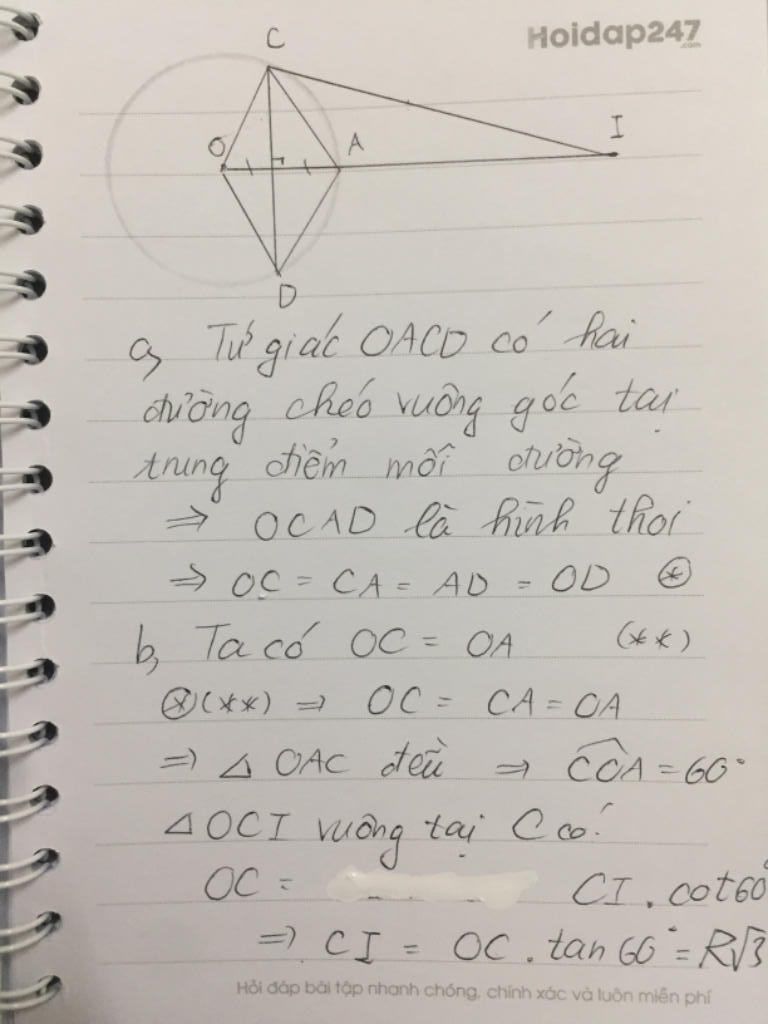 Hoidap247
.com
C
I
O
A
D
a, Tứ giác OACD có hai
đường chéo vuông góc tại
trung điểm mỗi đường
⇒ OCAD là hình thoi
⇒ OC = CA = AD = OD ⊛
b, Ta có OC = OA (**)
⊛(**) ⇒ OC = CA = OA
⇒ △ OAC đều ⇒ \widehat{COA} = 60°
△ OCI vuông tại C có:
OC = CI . cot60°
⇒ CI = OC . tan 60° = R√3
Hỏi đáp bài tập nhanh chóng, chính xác và luôn miễn phí